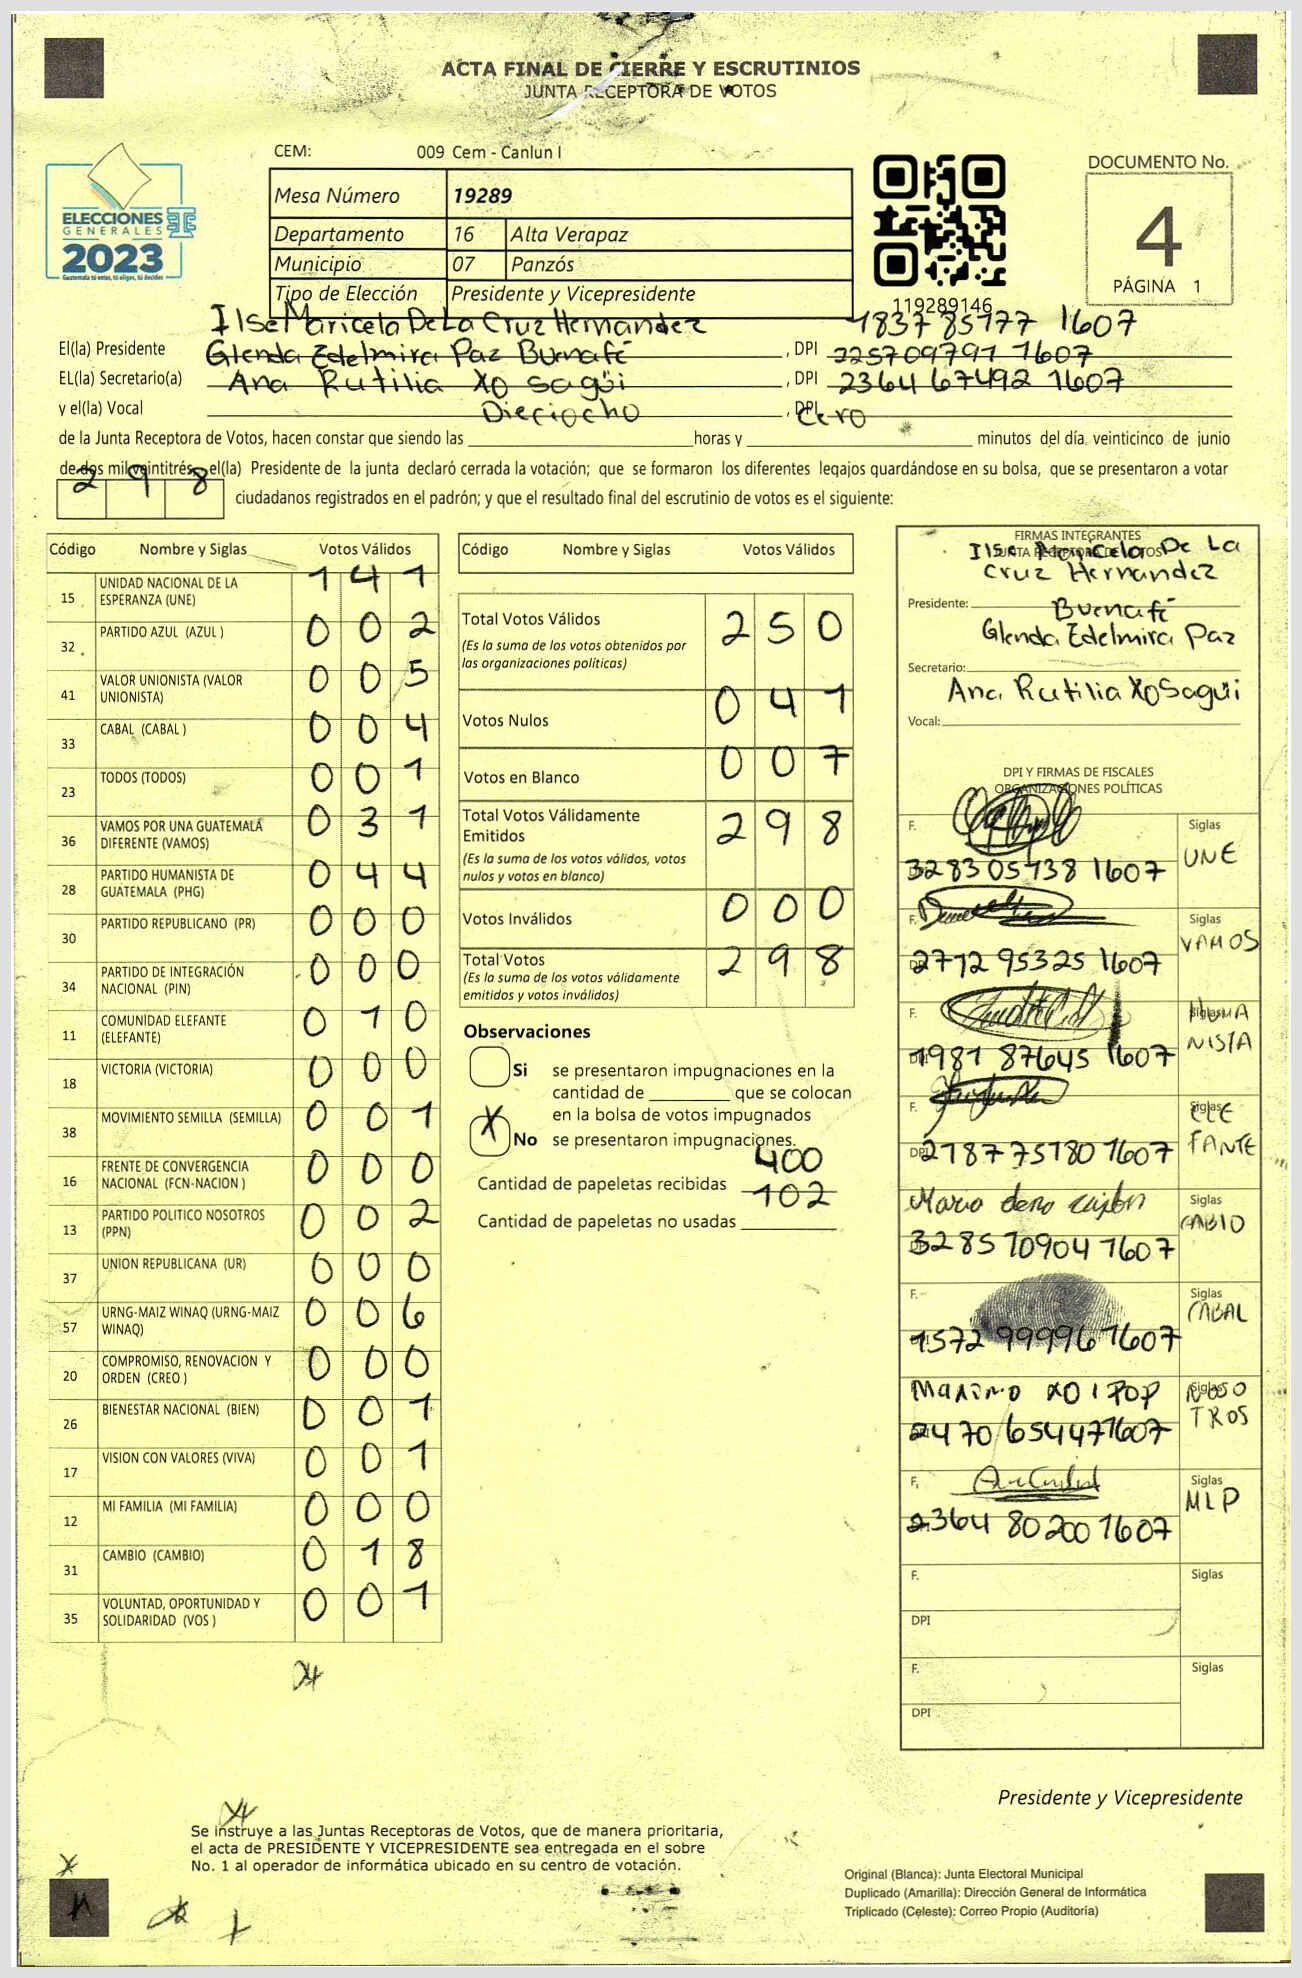 ACTA FINAL DE CIERRE Y ESCRUTINIOS
JUNTA RECEPTORA DE VOTOS
CEM: 009 Cem - Canlun I
Mesa Número 19289
Departamento 16 Alta Verapaz
Municipio 07 Panzós
Tipo de Elección Presidente y Vicepresidente
ELECCIONES
GENERALES
2023
Guatemala tú votas, tú eliges, tú decides
119289146
DOCUMENTO No.
4
PÁGINA 1
Ilse Maricela De La Cruz Hernandez 1837 85177 1607
El(la) Presidente Glenda Edelmira Paz Buenafé , DPI 225709791 1607
EL(la) Secretario(a) Ana Rutilia Xo Sagüi , DPI 2364 67492 1607
y el(la) Vocal Dieciocho , DPI Cero
de la Junta Receptora de Votos, hacen constar que siendo las horas y minutos del día veinticinco de junio
de dos mil veintitrés, el(la) Presidente de la junta declaró cerrada la votación; que se formaron los diferentes legajos quardándose en su bolsa, que se presentaron a votar
298 ciudadanos registrados en el padrón; y que el resultado final del escrutinio de votos es el siguiente:
Código Nombre y Siglas Votos Válidos
15 UNIDAD NACIONAL DE LA ESPERANZA (UNE) 1 4 1
32 PARTIDO AZUL (AZUL ) 0 0 2
41 VALOR UNIONISTA (VALOR UNIONISTA) 0 0 5
33 CABAL (CABAL ) 0 0 4
23 TODOS (TODOS) 0 0 1
36 VAMOS POR UNA GUATEMALA DIFERENTE (VAMOS) 0 3 1
28 PARTIDO HUMANISTA DE GUATEMALA (PHG) 0 4 4
30 PARTIDO REPUBLICANO (PR) 0 0 0
34 PARTIDO DE INTEGRACIÓN NACIONAL (PIN) 0 0 0
11 COMUNIDAD ELEFANTE (ELEFANTE) 0 1 0
18 VICTORIA (VICTORIA) 0 0 0
38 MOVIMIENTO SEMILLA (SEMILLA) 0 0 1
16 FRENTE DE CONVERGENCIA NACIONAL (FCN-NACION ) 0 0 0
13 PARTIDO POLITICO NOSOTROS (PPN) 0 0 2
37 UNION REPUBLICANA (UR) 0 0 0
57 URNG-MAIZ WINAQ (URNG-MAIZ WINAQ) 0 0 6
20 COMPROMISO, RENOVACION Y ORDEN (CREO ) 0 0 0
26 BIENESTAR NACIONAL (BIEN) 0 0 1
17 VISION CON VALORES (VIVA) 0 0 1
12 MI FAMILIA (MI FAMILIA) 0 0 0
31 CAMBIO (CAMBIO) 0 1 8
35 VOLUNTAD, OPORTUNIDAD Y SOLIDARIDAD (VOS ) 0 0 1
Código Nombre y Siglas Votos Válidos
Total Votos Válidos 2 5 0
(Es la suma de los votos obtenidos por
las organizaciones politicas)
Votos Nulos 0 4 1
Votos en Blanco 0 0 7
Total Votos Válidamente
Emitidos 2 9 8
(Es la suma de los votos válidos, votos
nulos y votos en blanco)
Votos Inválidos 0 0 0
Total Votos 2 9 8
(Es la suma de los votos válidamente
emitidos y votos inválidos)
Observaciones
Si se presentaron impugnaciones en la
cantidad de que se colocan
en la bolsa de votos impugnados
X No se presentaron impugnaciones.
400
Cantidad de papeletas recibidas 102
Cantidad de papeletas no usadas
FIRMAS INTEGRANTES
JUNTA RECEPTORA DE VOTOS
Ilse Maricela De La
Cruz Hernandez
Presidente: Buenafé
Glenda Edelmira Paz
Secretario:
Ana Rutilia Xo Sagüi
Vocal:
DPI Y FIRMAS DE FISCALES
ORGANIZACIONES POLÍTICAS
F. Siglas UNE
3283 05738 1607
F. Siglas VAMOS
DPI 2772 95325 1607
F. Siglas HUMA
NISTA
DPI 1981 87645 1607
F. Siglas ELE
FANTE
DPI 2787 75780 1607
Mario Siglas CAMBIO
3285 70904 1607
F. Siglas CABAL
1572 99996 1607
Maximo XO 1 POP Siglas NOSO
TROS
2470 65447 1607
F. Siglas MLP
2364 80200 1607
F. Siglas
DPI
F. Siglas
DPI
Presidente y Vicepresidente
Se instruye a las Juntas Receptoras de Votos, que de manera prioritaria,
el acta de PRESIDENTE Y VICEPRESIDENTE sea entregada en el sobre
No. 1 al operador de informática ubicado en su centro de votación.
Original (Blanca): Junta Electoral Municipal
Duplicado (Amarilla): Dirección General de Informática
Triplicado (Celeste): Correo Propio (Auditoría)